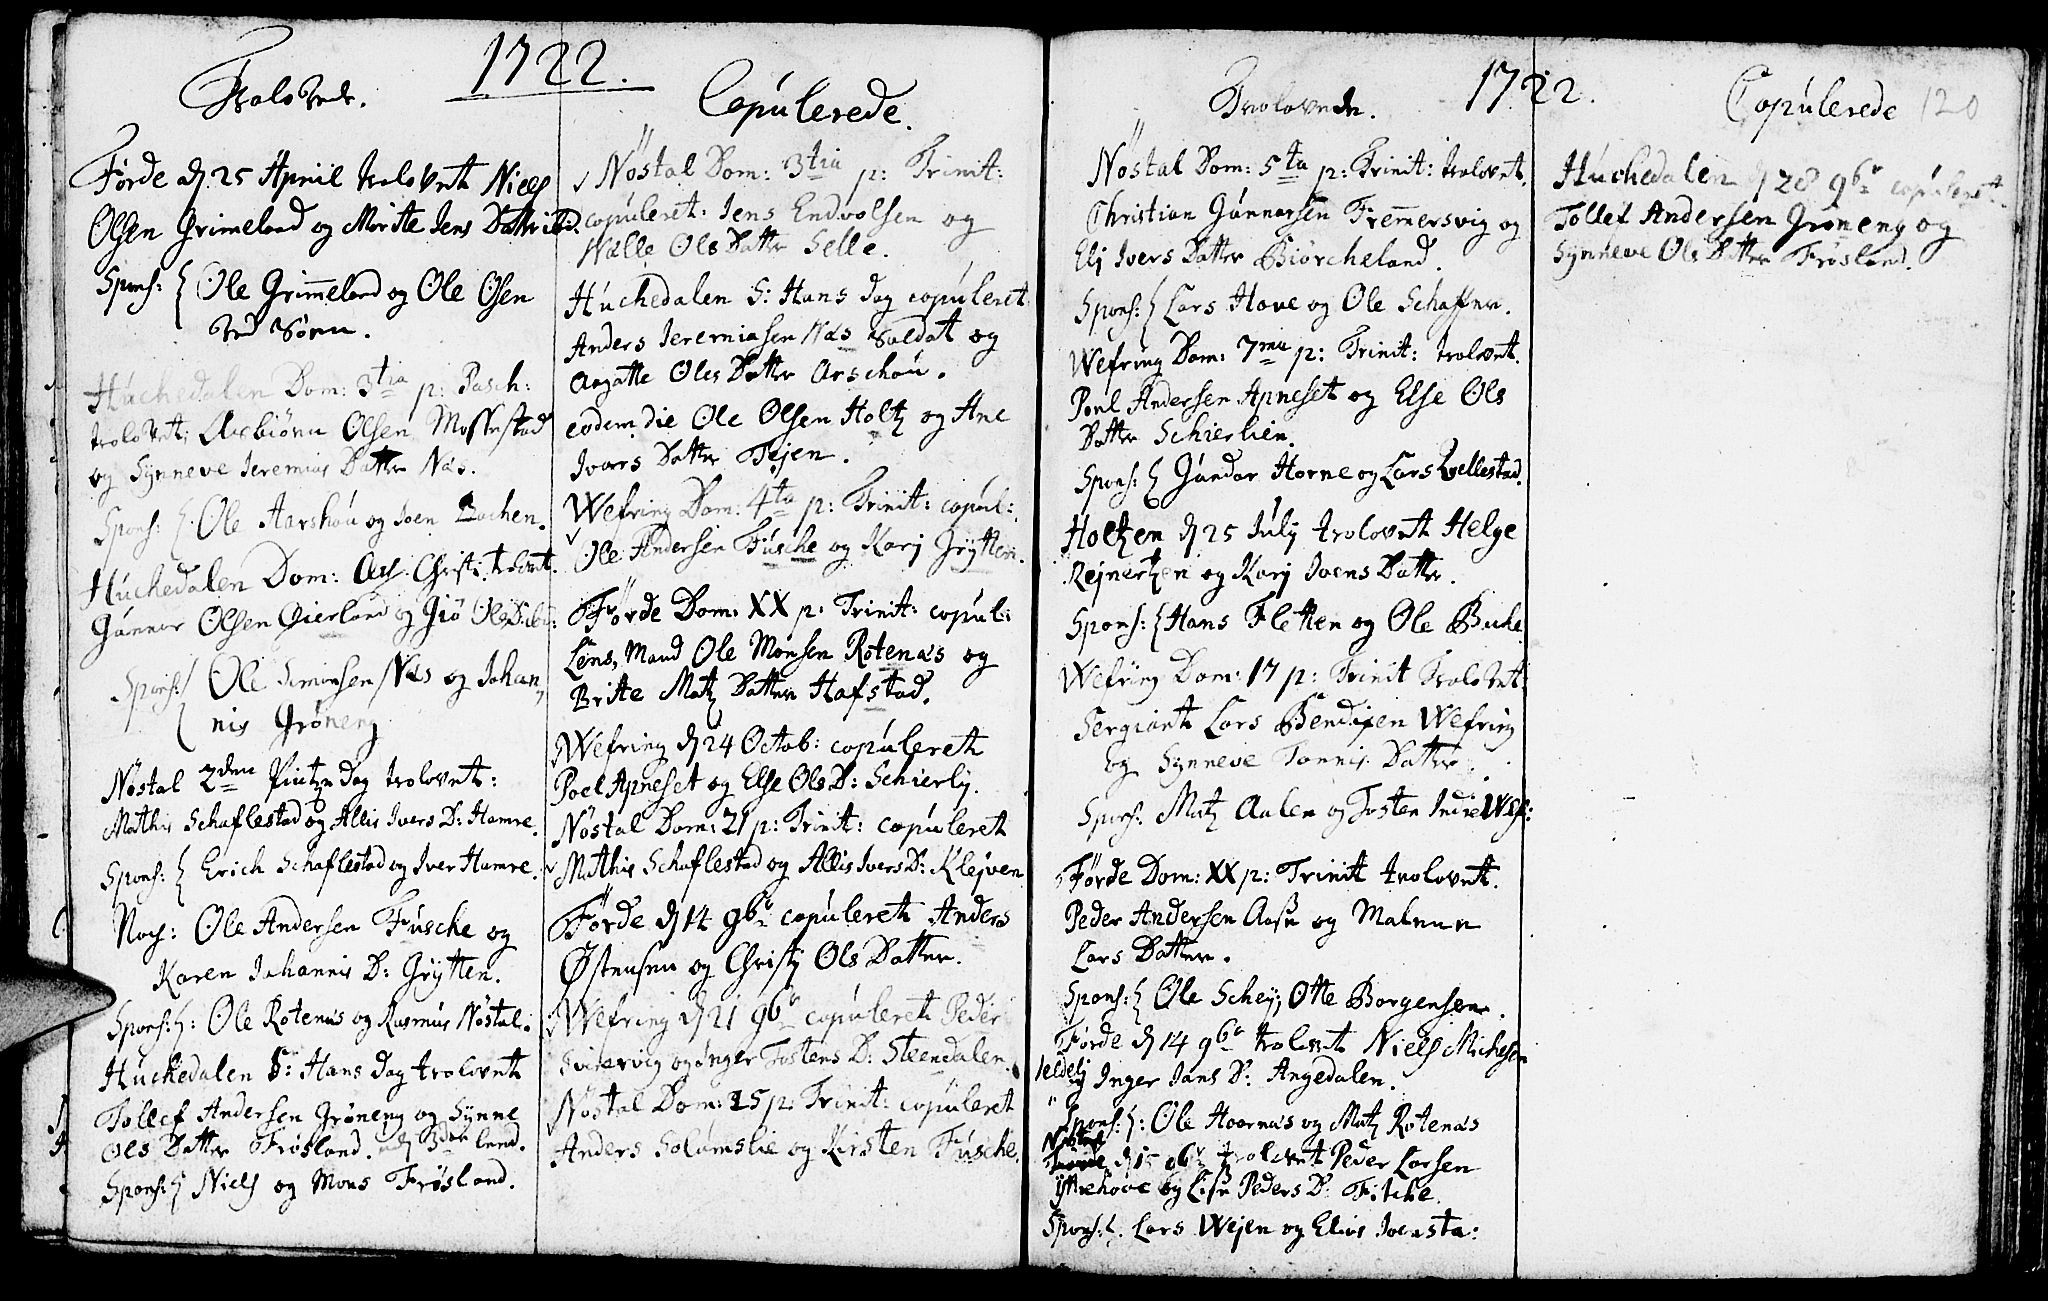 1722.
Trolovede.
Førde d 25 Apriil trolovet Niels
Olsen Grimeland og Marite Jens Datter ibid.
Spons: Ole Grimeland og Ole Osen
ved Søen.
Huchedalen Dom: 3tia p: Pasch:
trolovet: Asbiørn Olsen Mossestad
og Synneve Jeremias Datter Næs.
Spons: Ole Aarshou og Joen
Huchedalen Dom: Asc. Christi trolovet.
Gunner Olsen Gierland og Giø Ols D:
Spons: Ole Simonsen Næs og Johan,
nis Grøneng
Nøstal 2den Pintze dag trolovet:
Mathis Schaflestad og Allis Ivers D: Hamre.
Spons: Erich Schaflestad og Iver Hamre.
Noch: Ole Andersen Fusche og
Karen Johannis D: Grytten.
Spons: Ole Rotenæs og Rasmus Nøstal.
Huchedalen S: Hans dag trolovet
Tollef Andersen Grøneng og Synne
Ols Datter Frøsland.
Spons: Niels og Mons Frøsland.
Copulerede.
Nøstal Dom: 3tia p: Trinit:
copuleret: Jens Endvolsen og
Walle Ols Datter Selle.
Huchedalen S: Hans dag copuleret
Anders Jeremiasen Næs Soldat og
Aagatte Oles Datter Arschou.
eodem die Ole Olsen Holtz og Ane
Ivars Datter Tejen.
Wefring Dom: 4ta p: Trinit: copul:
Ole Andersen Fusche og Karj Grytten.
Førde Dom: XX p: Trinit: copul:
Lens, Mand Ole Monsen Rotenæs og
Brite Matz Datter Hafstad.
Wefring d 24 Octob: copuleret
Poel Apneset og Else Ols D: Schierlij.
Nøstal Dom: 21 p: Trinit: copuleret
Mathis Schaflestad og Allis Ivers D: Klejven
Førde d 14 9br copuleret Anders
Østensen og Christj Ols Datter.
Wefring d 21 9br copuleret Peder
og Inger Tostens D: Steendalen.
Nøstal Dom: 25 p: Trinit: copuleret
Anders Solumslie og Kirsten Fusche.
1722.
Trolovede.
Nøstal Dom: 5ta p: Trinit: trolovet.
Christian Gunnersen Fremersvig og
Elj Ivers Datter Biørcheland.
Spons: Lars Hove og Ole Schaffer.
Wefring Dom: 7ma p: Trinit: trolovet.
Poul Andersen Apneset og Else Ols
Datter Schierlien.
Spons: Gundar Horne og Lars Qvellestad.
Holtzen d 25 Julij trolovet Helge
Rejnertzen og Karj Joens Datter.
Spons: Hans Fletten og Ole Buhe
Wefring Dom: 17 p: Trinit trolovet.
Sergiant Lars Bendixen Wefring
og Synneve Tonnis Datter.
Spons: Matz Aalen og Josten Indre Wef:
Førde Dom: XX p: Trinit trolovet.
Peder Andersen Aase og Malene
Lars Datter.
Spons: Ole Schej, Otte Borgensen.
Førde d 14 9br trolovet Niels Michelsen
og Inger Jans D: Angedalen.
Spons: Ole Hoornæs og Matz Rotenæs
Nøstal
d 15 9br trolovet Peder Larsen
Yttrehove og Lisse Peders D: Fitche.
Spons: Lars Wejen og Elias Joensta:
Copulerede
120
Huchedalen d 28 9br copuleret.
Tollef Andersen Grøneng og
Synneve Ols Datter Frøsland.